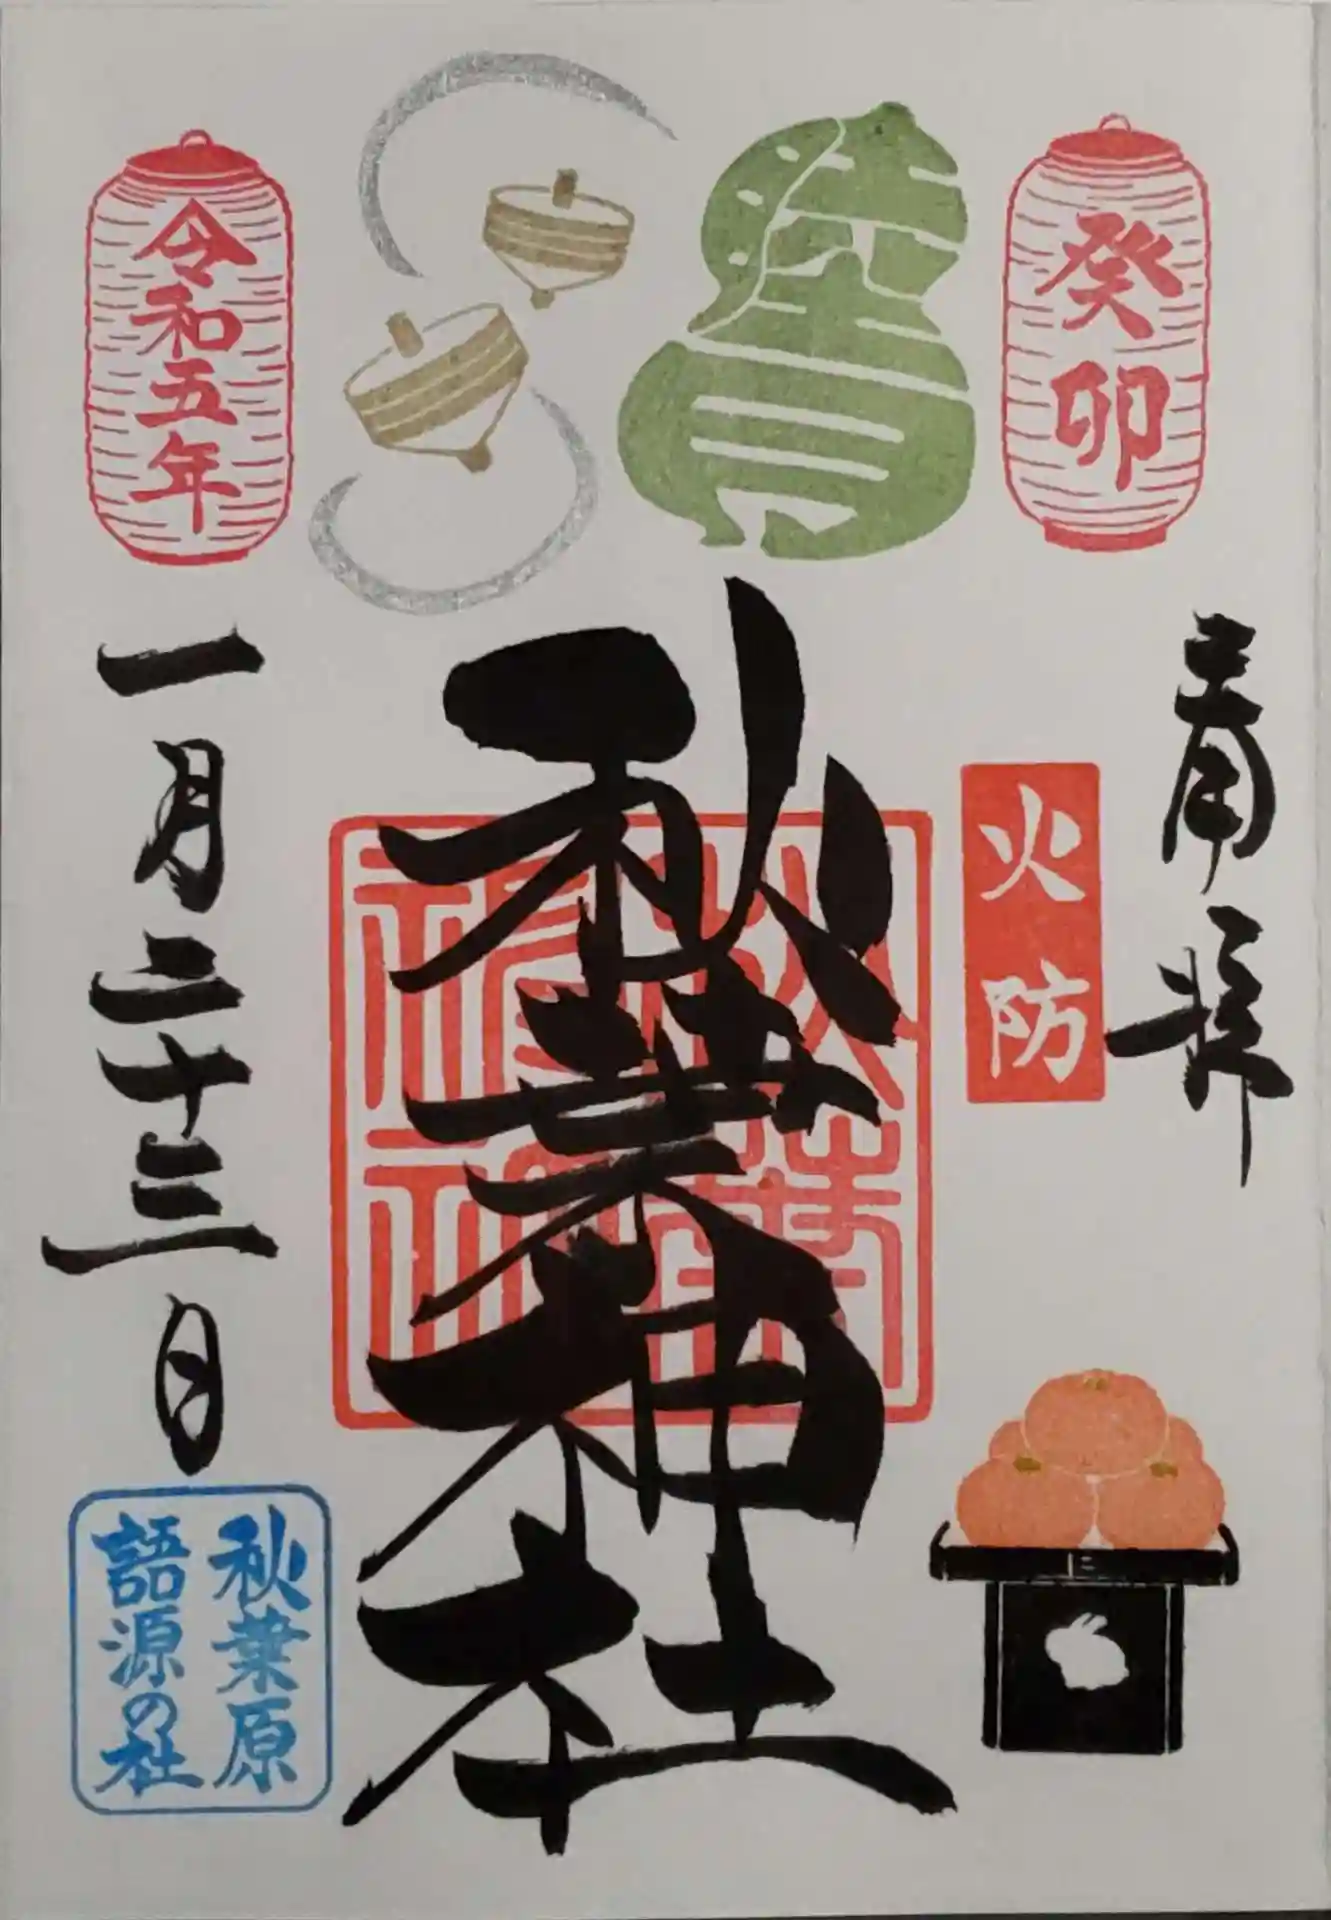 癸卯
奉拝
火防
秋葉神社
秋葉
神社
令和五年
一月二十三日
秋葉原
語源の社